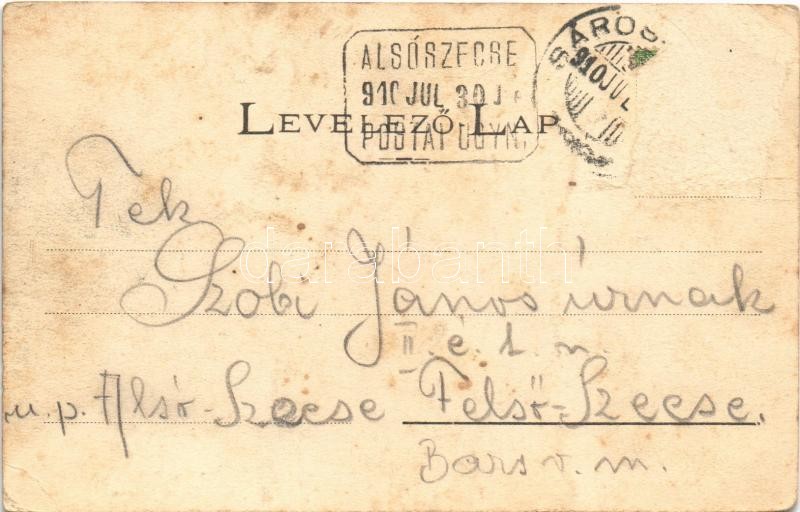 ALSÓSZECSE
910 JUL 30
LEVELEZŐ LAP
POSTAI ÜGYN.
ÁROS
910 JUL
Tek
Szobi János úrnak
II. é. t. n.
u. p. Alsó-Szecse Felső-Szecse.
Bars v. m.
darabanth